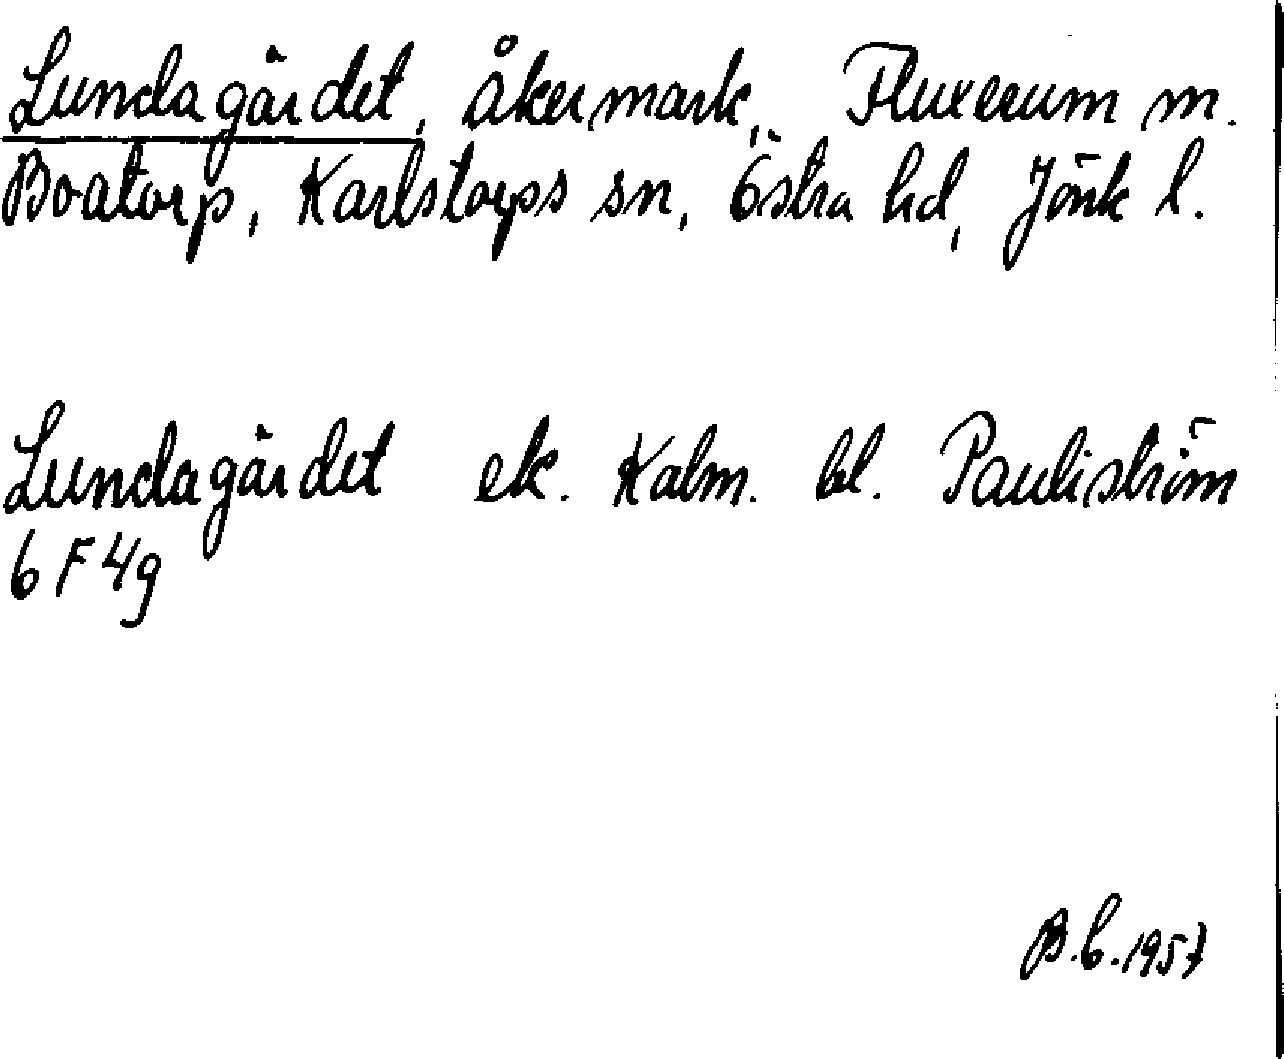 Lundagärdet, åkermark, Fluxerum m.
Boatorp, Karlstorps sn, Östra hd, Jönk l.
Lundagärdet ek. Kalm. bl. Pauliström
6 F 4g
B.C. 1957